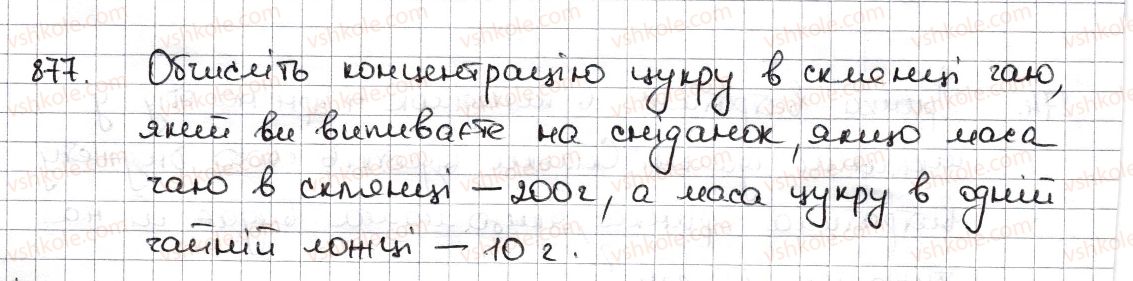 877. Обчисліть концентрацію цукру в склянці чаю,
який ви випиваєте на сніданок, якщо маса
чаю в склянці – 200г, а маса цукру в одній
чайній ложці – 10 г.